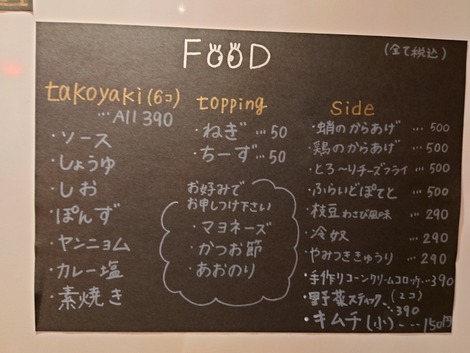 FOOD
(全て税込)
takoyaki (6コ)
… All 390
・ソース
・しょうゆ
・しお
・ぽんず
・ヤンニョム
・カレー塩
・素焼き
topping
・ねぎ … 50
・ちーず … 50
お好みで
お申しつけ下さい
・マヨネーズ
・かつお節
・あおのり
Side
・蛸のからあげ … 500
・鶏のからあげ … 500
・とろ〜りチーズフライ … 500
・ふらいどぽてと … 500
・枝豆 わさび風味 … 290
・冷奴 … 290
・やみつききゅうり … 290
・手作りコーンクリームコロッケ … 390
・野菜スティック (2コ) … 390
・キムチ (小) … 150円